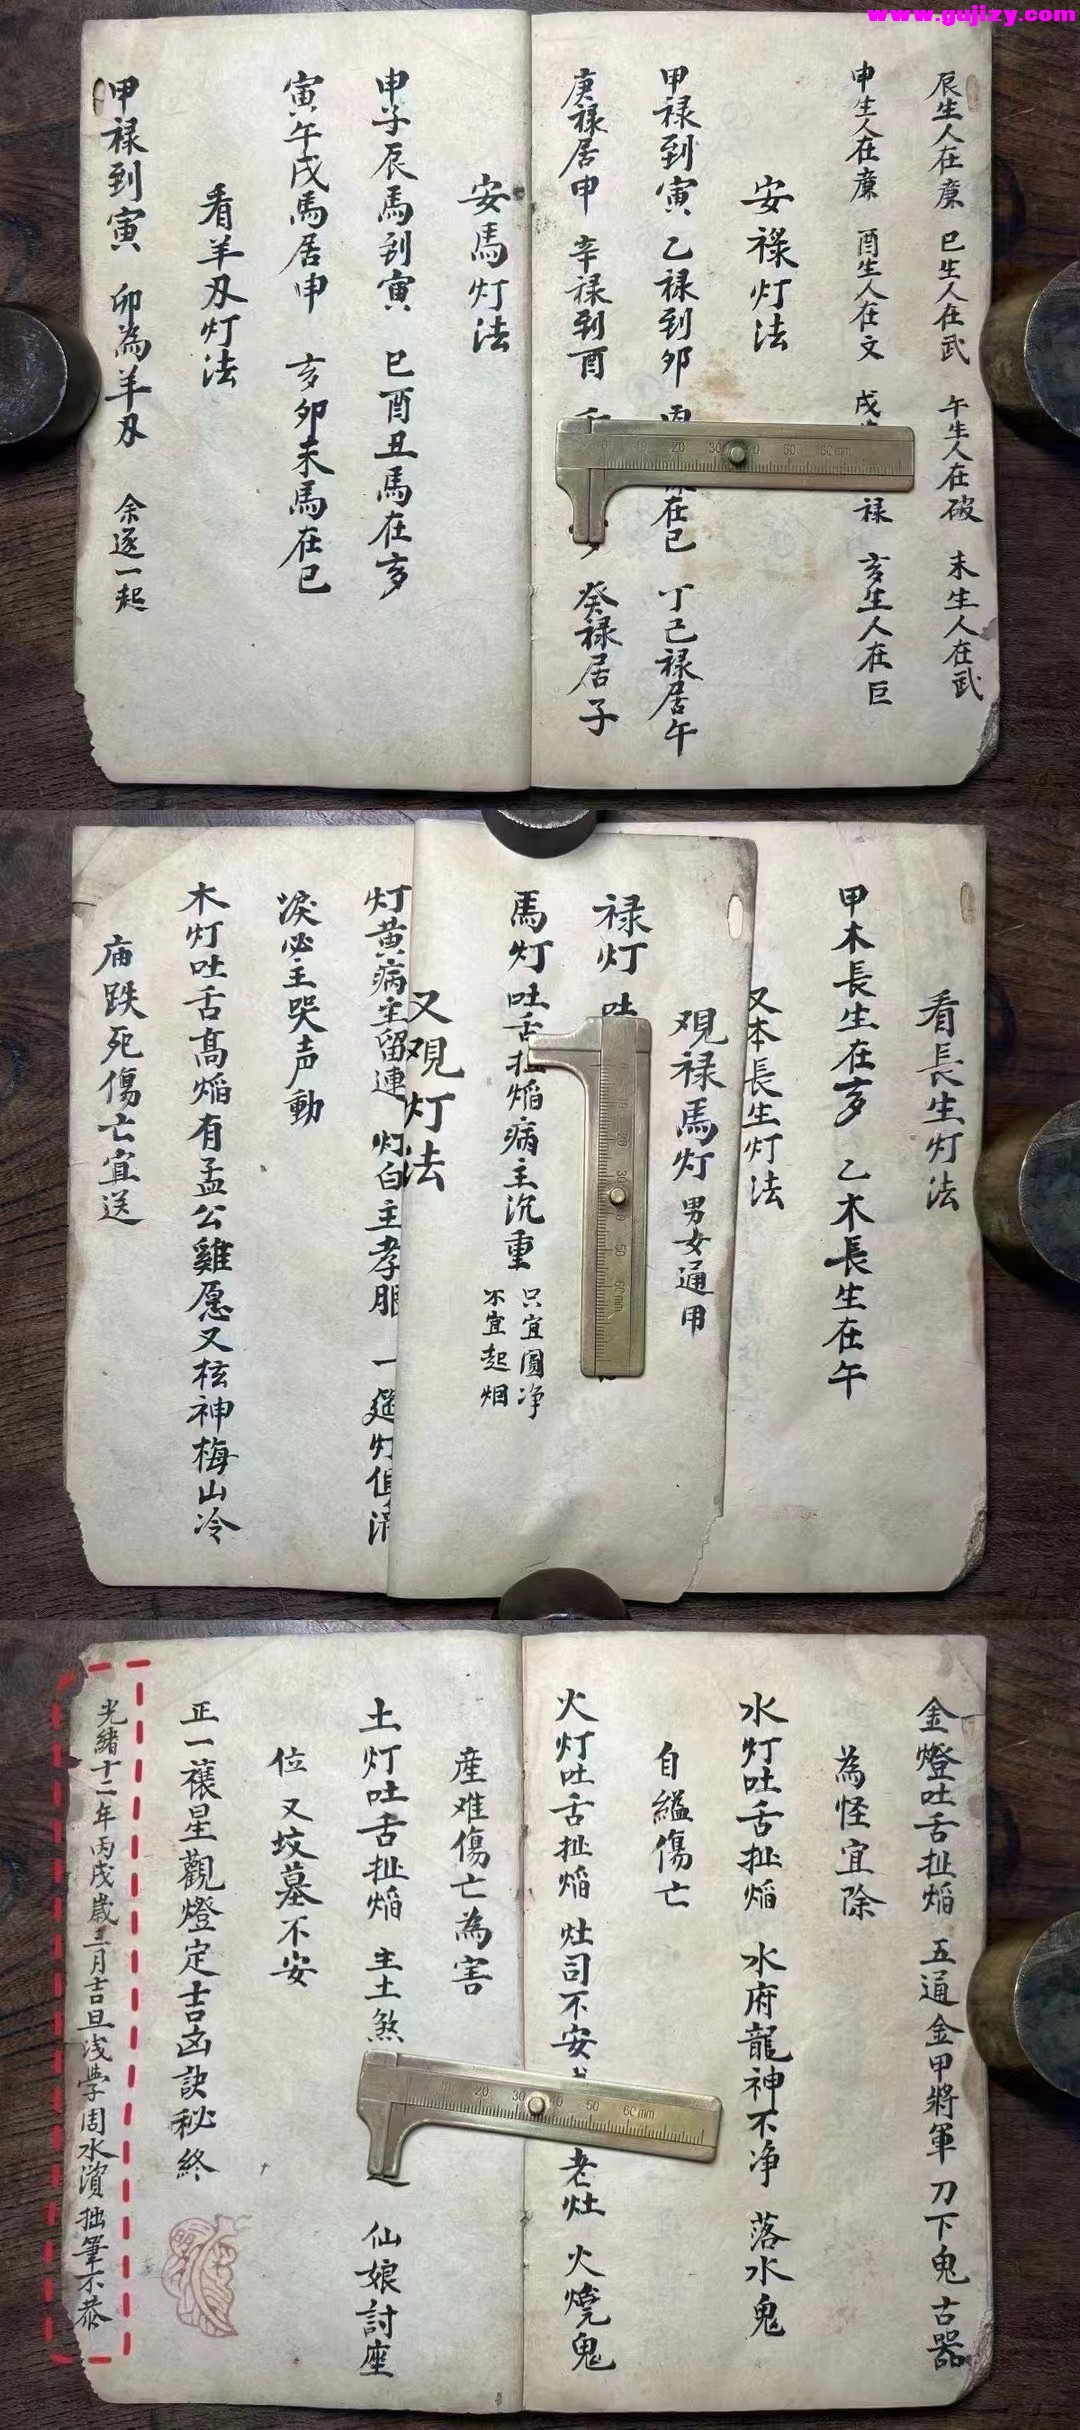 www.gujizy.com
辰生人在廉 巳生人在武 午生人在破 未生人在武
申生人在廉 酉生人在文 戌 禄 亥生人在巨
安禄灯法
甲禄到寅 乙禄到卯 在巳 丁己禄居午
庚禄居申 辛禄到酉 癸禄居子
安馬灯法
申子辰馬到寅 巳酉丑馬在亥
寅午戌馬居申 亥卯未馬在巳
看羊刃灯法
甲禄到寅 卯為羊刃 余逐一起
看長生灯法
甲木長生在亥 乙木長生在午
又本長生灯法
覌禄馬灯 男女通用
禄灯 吐
馬灯吐舌扯焰病主沉重 只宜圓净
不宜起烟
又覌灯法
灯黄病主留連 灯白主孝服 一筵灯
淚必主哭声動
木灯吐舌高焰有孟公雞愿又核神梅山冷
庙跌死傷亡宜送
金燈吐舌扯焰 五通金甲將軍 刀下鬼 古器
為怪宜除
水灯吐舌扯焰 水府龍神不净 落水鬼
自縊傷亡
火灯吐舌扯焰 灶司不安 老灶 火燒鬼
産难傷亡為害
土灯吐舌扯焰 主土煞 仙娘討座
位 又坟墓不安
正一禳星觀燈定吉凶訣秘終
光緒十二年丙戌歲三月吉旦浅學周水濱拙筆不恭
0 10 20 30 50 60mm
20 30 50 60mm
10 20 30 50 60mm